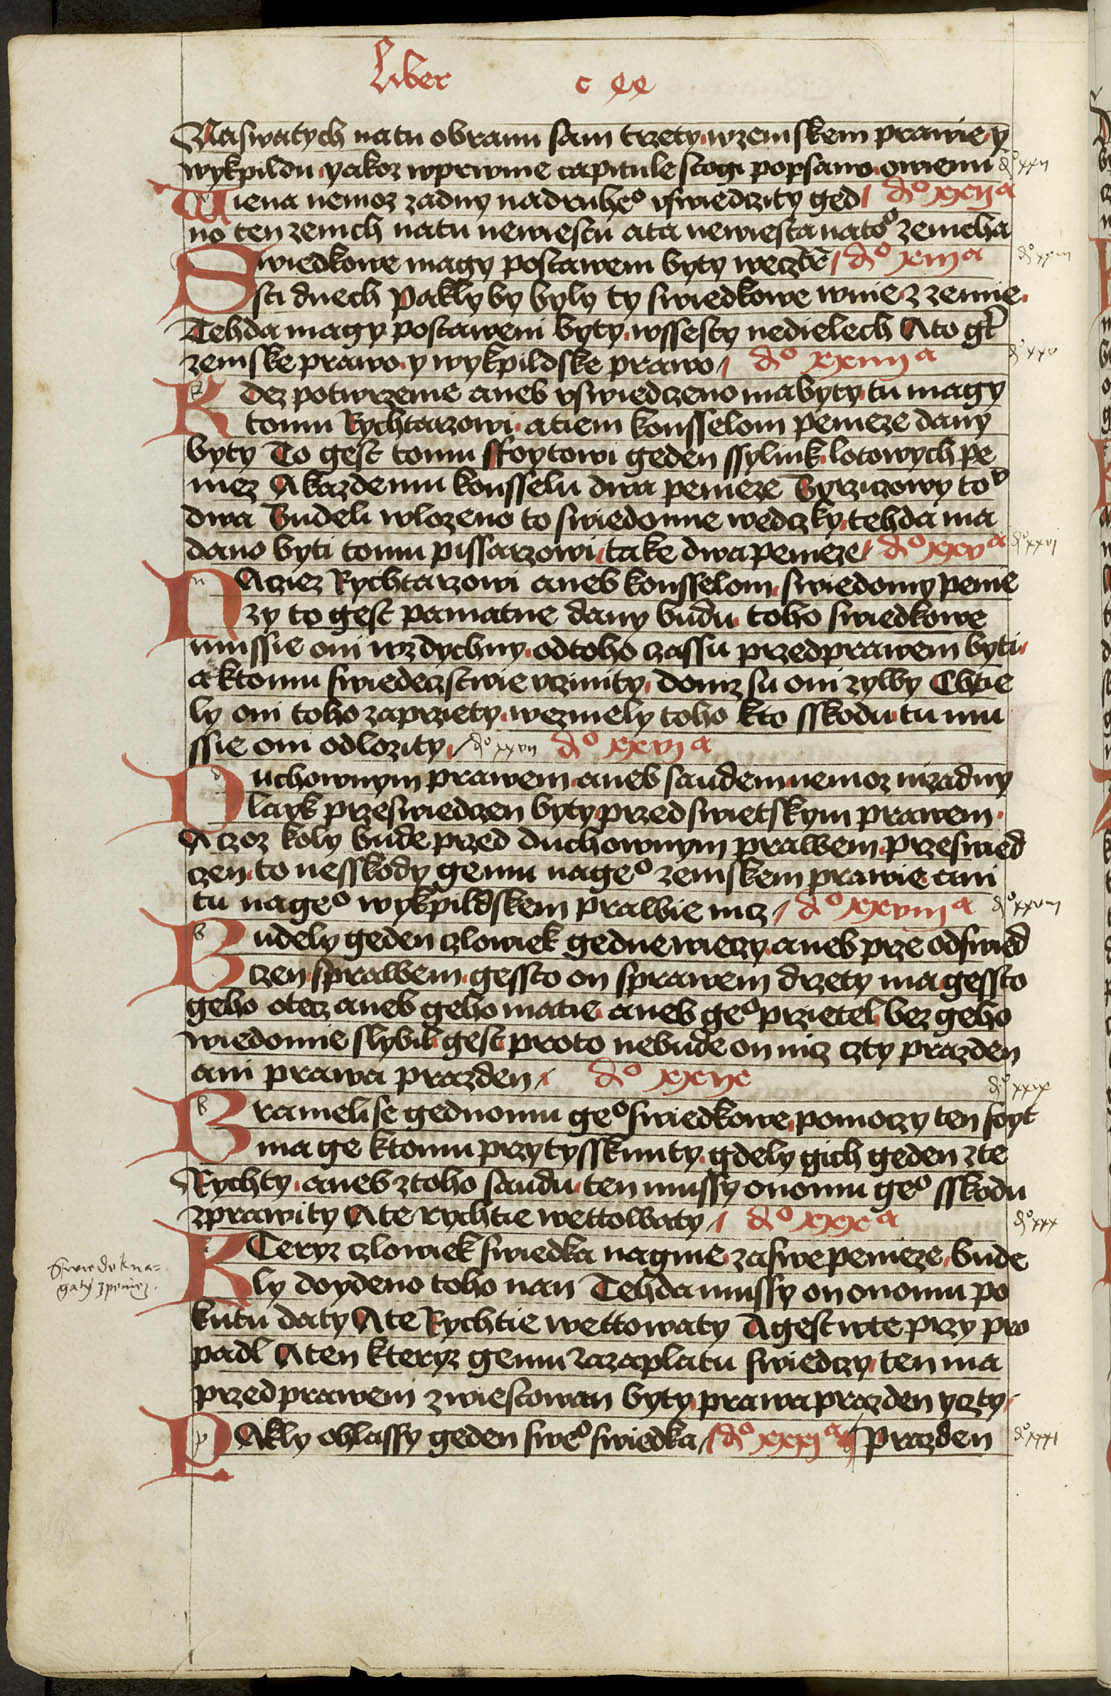 Liber c xx
Naswatych natu obranu sam trzety wzemskem prawie y
wykpildu yakoz wprwnie capitule stogi popsano owienu do xxii
Wiena nemoz zadny nadruheo uswiedczity ged do xxii a
no ten zenich natu newiestu ata newiesta natoo zenicha
Swiedkowe magy postawem byty weczte do xxiii a do xxiii
sti dnech Pakly by byly ty swiedkowe wnie z zemie
Tehda magy postaweni byty wssesty nedielech Ato gt
zemske prawo y wykpildske prawo do xxiiii a do xxv
Kdez potwrzenie aneb uswiedczeno ma byty tu magy
tomu Rychtarzowi atiem konsselom penieze dany
byty To gest tomu ffoytowi geden ssylink lotowych pe
niez Akazdemu konsselu dwa penieze Byrziczowy to
dwa Budeli wlozeno to swiedomie wedczky tehda ma
dano byti tomu pissarzowi take dwa penieze do xxv a do xxvi
NAcziez Rychtarzowi aneb konsselom swiedomy penie
zy to gest pamatne dany budu toho swiedkowe
mussie oni wzdychny odtoho czassu przedprawem byti
a ktomu swiedeczstwie uczinity doniz su oni zywy Chtie
ly oni toho zaprziety wezmely toho kto sskodu tu mu
ssie oni odlozity do xxvii do xxvi a
Duchownym prawem aneb saudem nemoz nizadny
layk przeswiedczen byty przed swietskym prawem
A czoz koly bude przed duchownym prawem przeswied
czen to nesskody gemu nageo zemskem prawie ani
tu nageo wykpildskem prawie nicz do xxviii a do xxviii
Budely geden czlowiek gedne wieczy aneb prze odswied
czen sprawem gessto on sprawem drzety ma gessto
geho otecz aneb geho matie aneb geo przietel bez geho
wiedomie slybil gest proto nebude on nicz czty prazden
ani prawa prazden do xxix do xxix
Branielise gednomu geo swiedkowe pomoczy ten foyt
ma ge ktomu przytysskunty gdely gich geden zte
Rychty aneb ztoho saudu ten mussy onomu geo sskodu
zprawity A te rychtie wettowaty do xxx a do xxx
KTeryz czlowiek swiedka nagme zaswe penieze bude
ly doydeno toho nan Tehda mussy on onomu po
kutu daty A te Rychtie wettowaty A gest wte przy pro
padl A ten kteryz gemu zazaplatu swiedczy ten ma
przed prawem zwiestowan byty prawa prazden yczty
PAkly ohlassy geden sweo swiedka do xxxi a prazden do xxxi